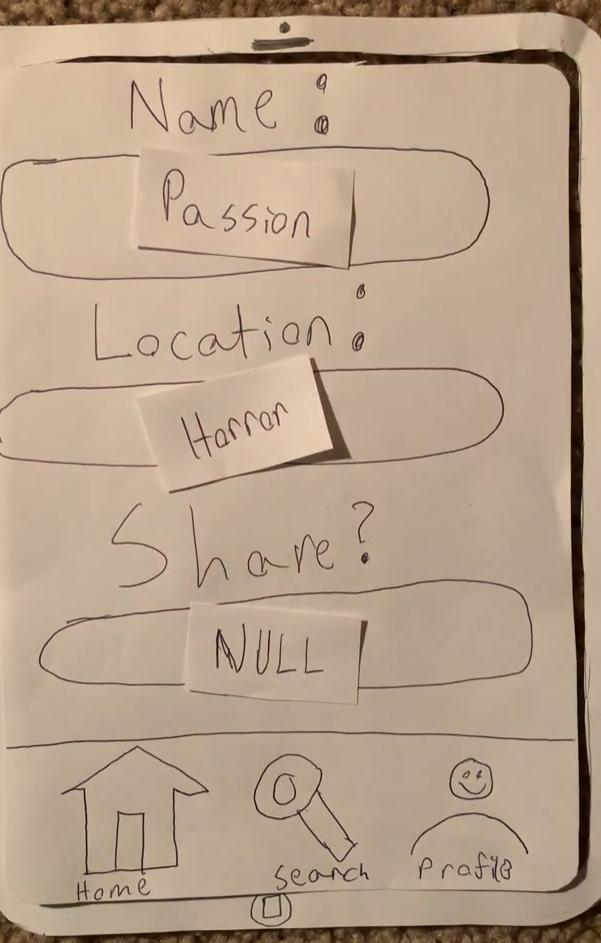 Name:
Passion
Location:
Horror
Share?
NULL
Home
Search
Profile